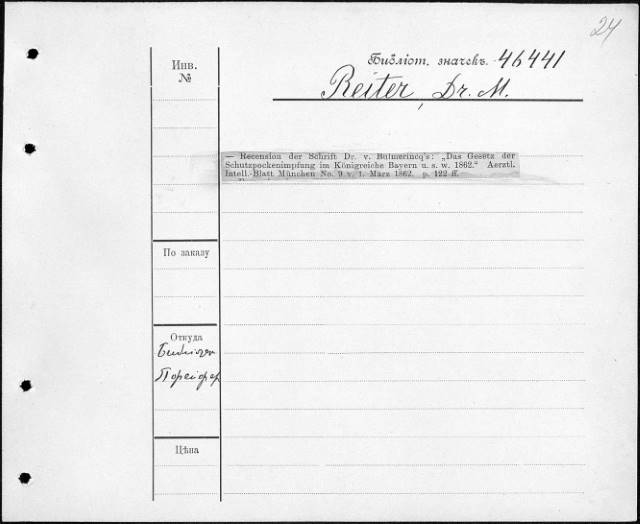 24
Инв. №
Библіот. значекъ 46441
Reiter, Dr. M.
— Recension der Schrift Dr. v. Bulmerincq's: „Das Gesetz der
Schutzpockenimpfung im Königreiche Bayern u. s. w. 1862.“ Aerztl.
Intell.-Blatt München No. 9 v. 1. März 1862. p. 122 ff.
По заказу
Откуда
Цѣна